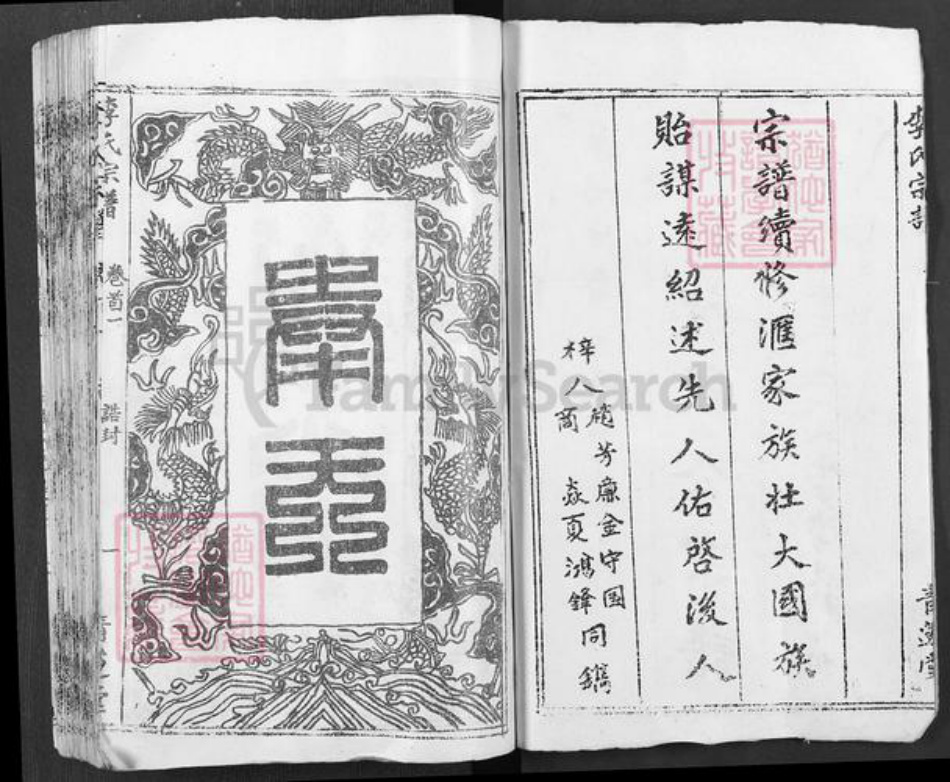 李氏宗譜
宗譜續修滙家族壯大國族
貽謀遠紹述先人佑啓後人
梓八
芳廉金守國
商
焱夏鴻鋒同鐫
奉天
李氏宗譜
卷首一
誥封
一
青蓮堂
收藏
FamilySearch